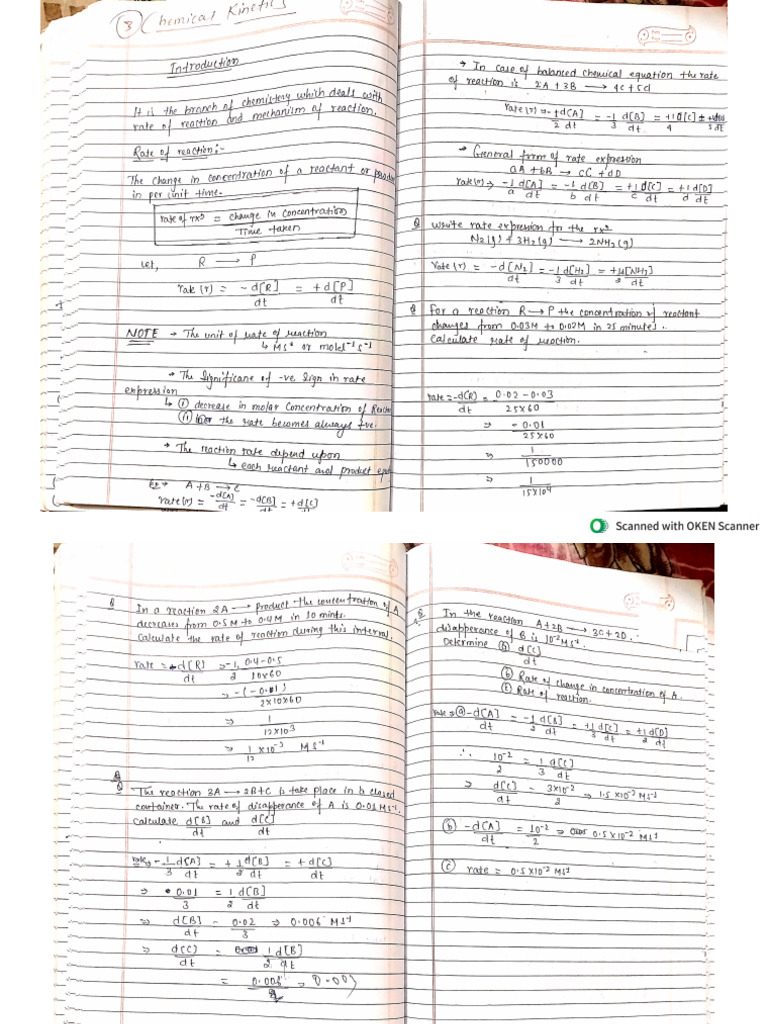 ③ Chemical Kinetics
Introduction
It is the branch of chemistery which deals with
rate of reaction and mechanism of reaction.
Rate of reaction:-
The change in concentration of a reactant or product
in per unit time.
rate of rxⁿ = change in concentration
Time taken
let, R → P
rate (r) = -d[R] / dt = +d[P] / dt
NOTE → The unit of rate of reaction
↳ Ms⁻¹ or mold⁻¹s⁻¹
→ The significane of -ve sign in rate
expression
↳ ① decrease in molar concentration of Reactant
(ii) the rate becomes always +ve.
→ The reaction rate depend upon
↳ each reactant and product
Ex → A+B → C
rate(r) = -d[A]/dt = -d[B]/dt = +d[C]
→ In case of balanced chemical equation the rate
of reaction is 2A + 3B → 4C + 5d
rate(r) = -1 d[A] / 2 dt = -1 d[B] / 3 dt = +1 d[C] / 4
→ General form of rate expression
aA + bB → cC + dD
rate(r) → -1 d[A] / a dt = -1 d[B] / b dt = +1 d[C] / c dt = +1 d[D] / d dt
Q write rate expression for the rxⁿ
N₂(g) + 3H₂(g) → 2NH₃(g)
rate(r) = -d[N₂] / dt = -1 d[H₂] / 3 dt = d[NH₃] / dt
Q for a reaction R → P the concentration of reactant
changes from 0.03M to 0.02M in 25 minutes.
Calculate rate of reaction.
rate = -d(R) / dt = 0.02 - 0.03 / 25×60
⇒ -0.01 / 25×60
⇒ 1 / 150000
⇒ 1 / 15×10⁴
Scanned with OKEN Scanner
Q In a reaction 2A → product the concentration of A
decreases from 0.5M to 0.4M in 10 mints.
Calculate the rate of reaction during this interval.
rate = -d(R) / dt ⇒ -1 / 2 0.4-0.5 / 10×60
⇒ -(-0.01) / 2×10×60
⇒ 1 / 12×10³
⇒ 1 / 12 ×10⁻³ Ms⁻¹
Q The reaction 3A → 2B+C is take place in b closed
container. The rate of disapperance of A is 0.01Ms⁻¹.
calculate d[B] / dt and d[C] / dt
rate → -1 d[A] / 3 dt = +1 d[B] / 2 dt = +d[C] / dt
⇒ 0.01 / 3 = 1 d[B] / 2 dt
⇒ d[B] / dt - 0.02 / 3 ⇒ 0.006 Ms⁻¹
⇒ d(C) / dt = 1 d[B] / 2 dt
Q In the reaction A+2B → 3C+2D.
disapperance of B is 10⁻²Ms⁻¹.
Determine ⓐ d[C] / dt
ⓑ Rate of change in concentration of A.
ⓒ Rate of reaction.
rate ⇒ ⓐ -d[A] / dt = -1 d[B] / 2 dt = +1 d[C] / 3 dt = +1 d[D] / 2 dt
∴ 10⁻² / 2 = 1 d[C] / 3 dt
⇒ d[C] / dt - 3×10⁻² / 2 ⇒ 1.5×10⁻² Ms⁻¹
ⓑ -d[A] / dt = 10⁻² / 2 ⇒ 0.5×10⁻² Ms⁻¹
ⓒ rate = 0.5×10⁻² Ms⁻¹